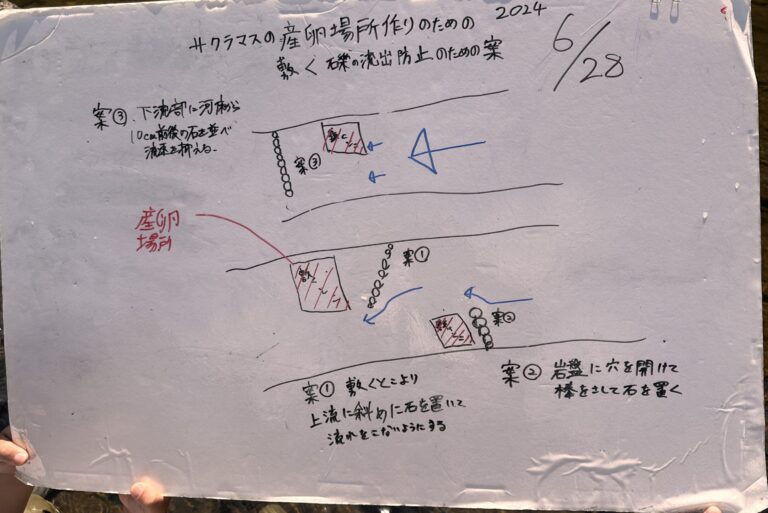 サクラマスの産卵場所作りのための
敷く礫の流出防止のための案
2024
6/28
案③ 下流部に河床から
10cm前後の石を並べ
流速を抑える。
案③
産卵
場所
案①
案②
案① 敷くとこより
上流に斜めに石を置いて
流れをこないようにする
案② 岩盤に穴を開けて
棒をさして石を置く